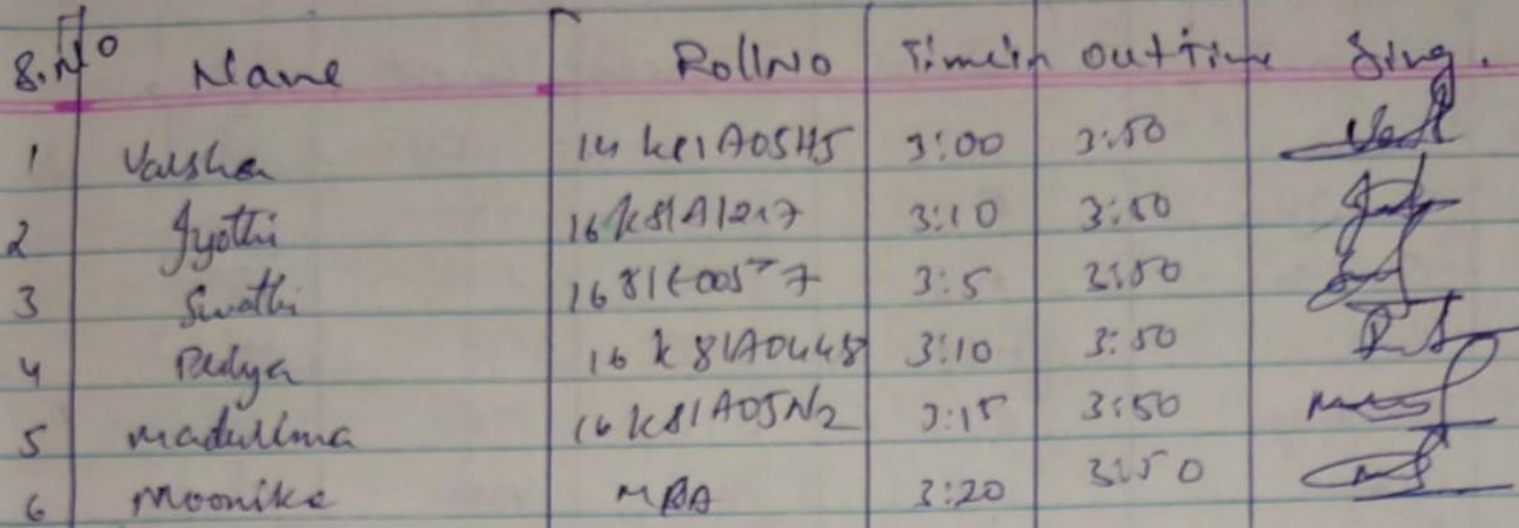 S.No Name RollNo Timein Out Time Sing.
1 Varsha 14K81A05H5 3:00 3:50
2 Jyothi 16K81A1217 3:10 3:50
3 Swathi 3:5 3:50
4 16K81A0448 3:10 3:50
5 16K81A05N2 3:15 3:50
6 Moonika MBA 3:20 3:50